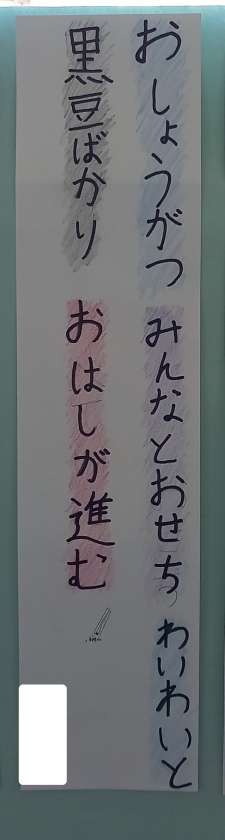 おしょうがつ みんなとおせち わいわいと
黒豆ばかり おはしが進む